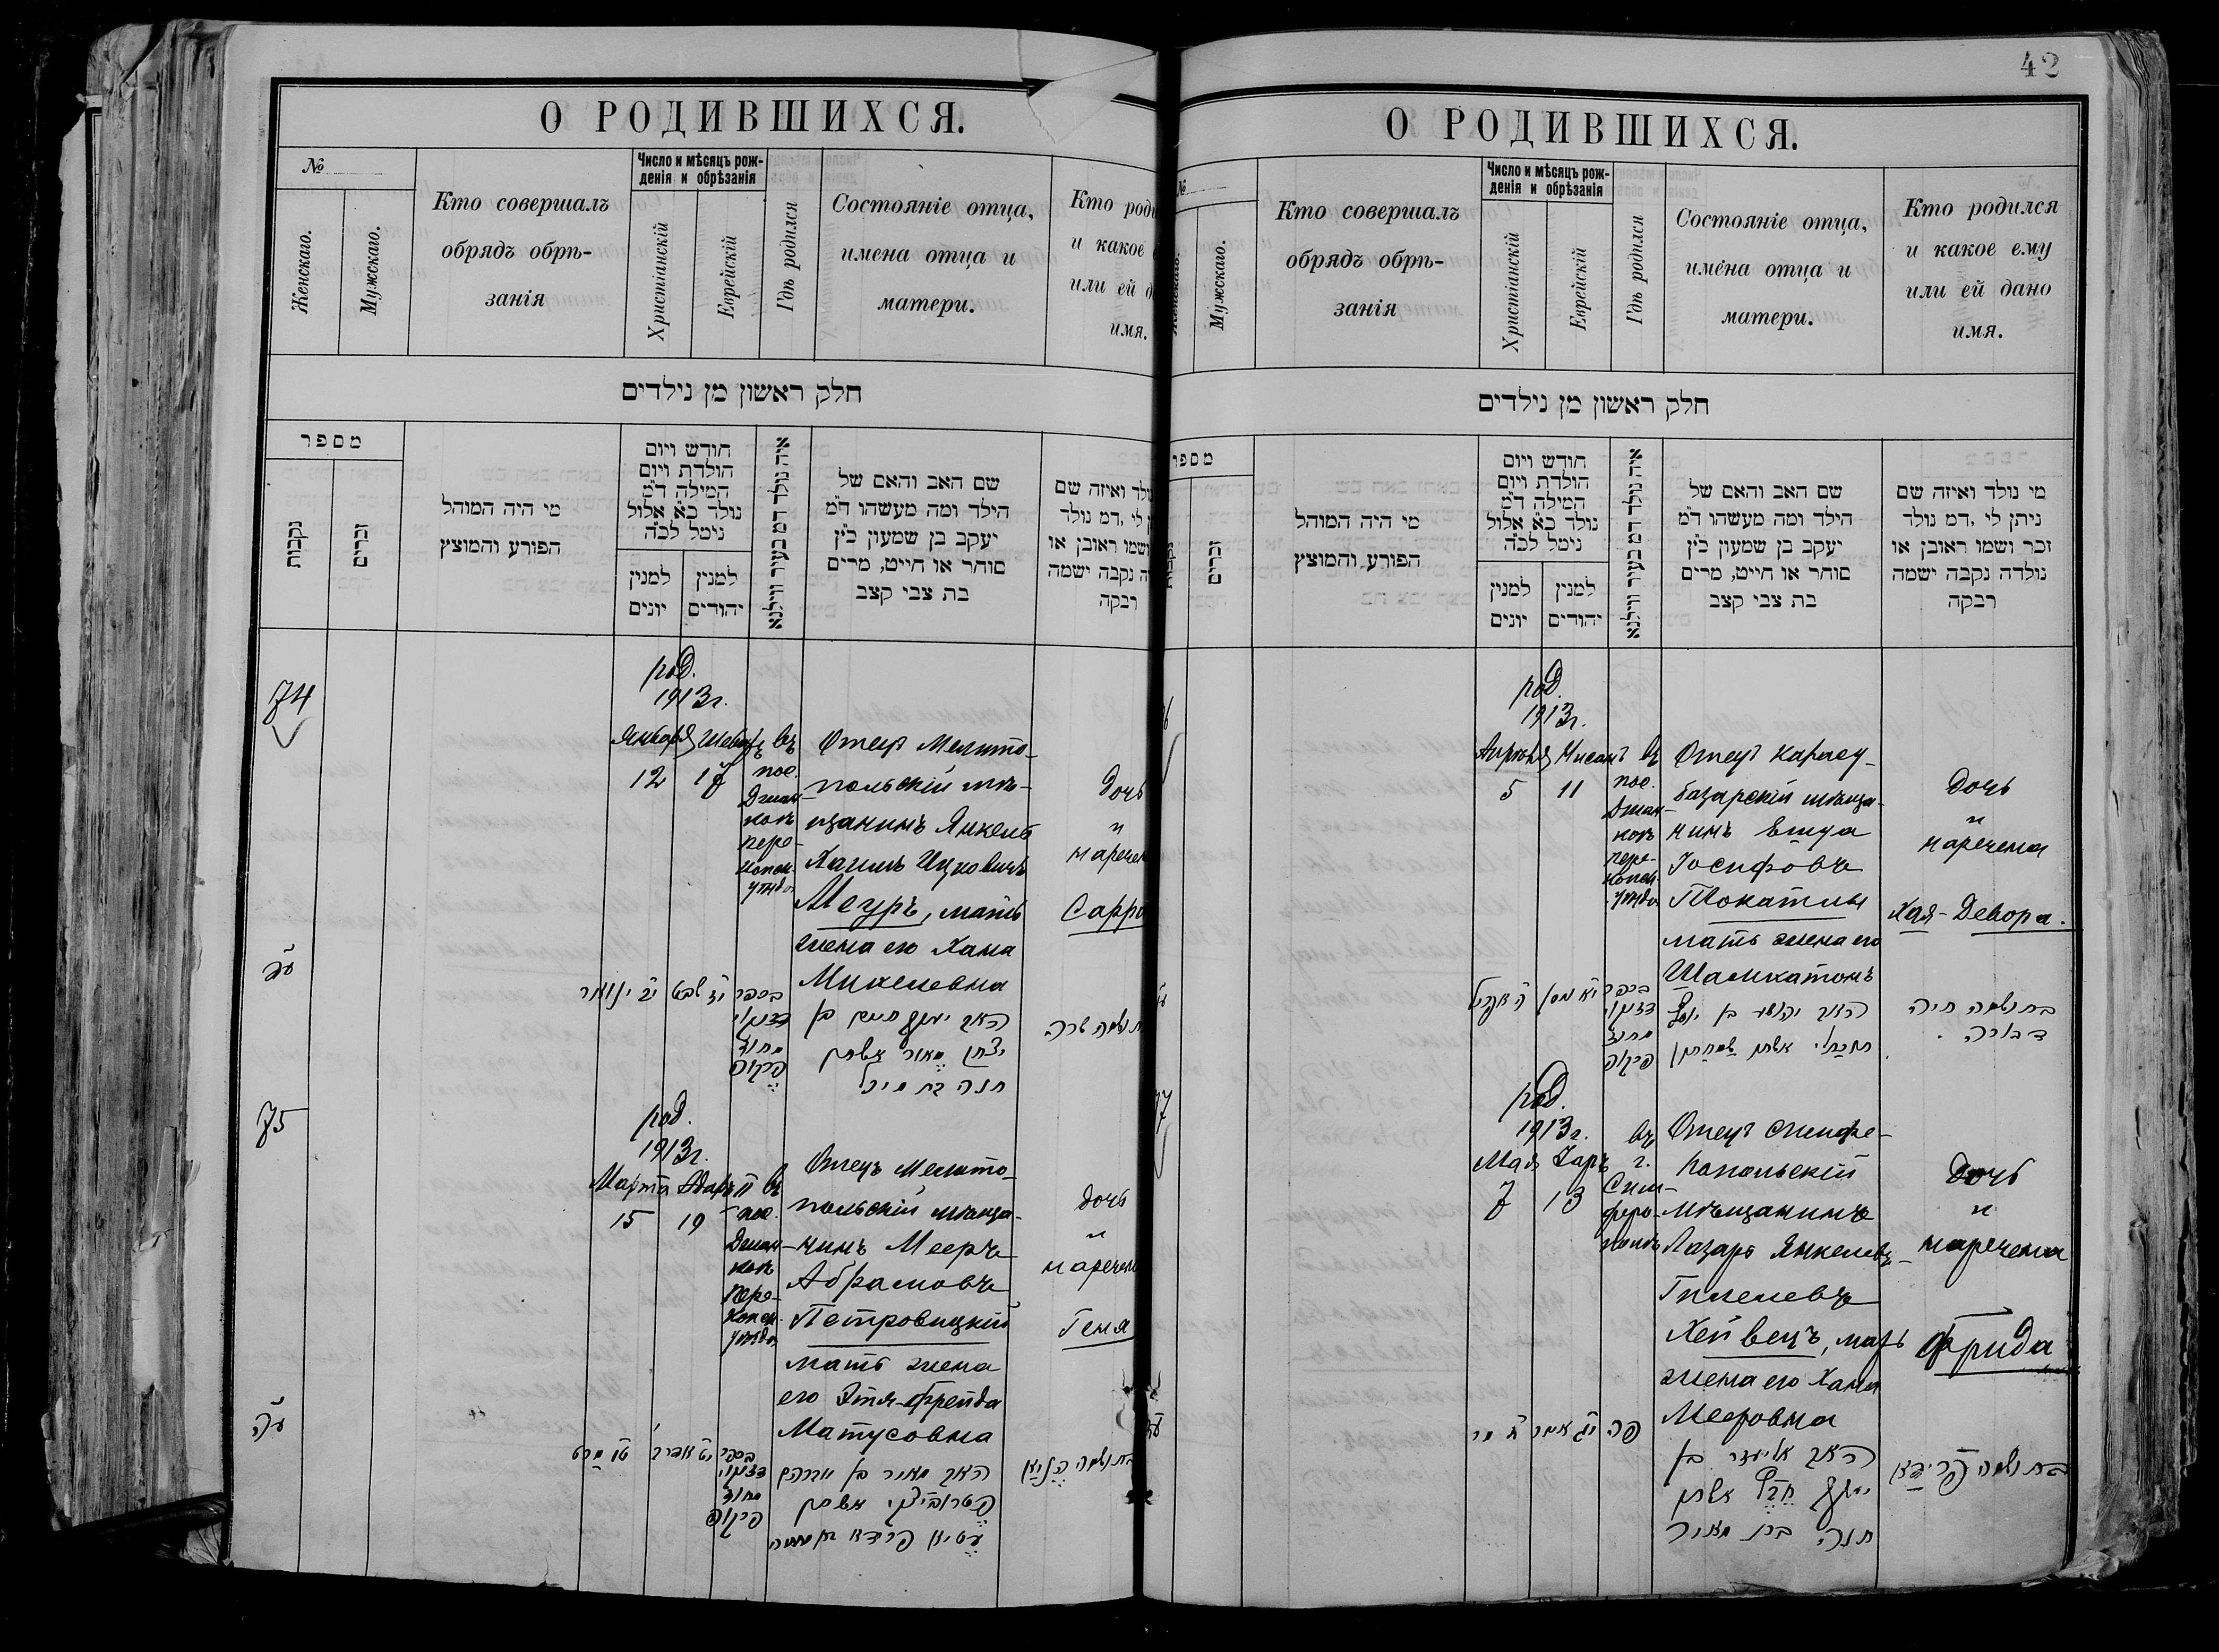 О РОДИВШИХСЯ.
№
Женскаго.
Мужскаго.
Кто совершалъ
обрядъ обрѣ-
занія
Число и мѣсяцъ рож-
денія и обрѣзанія
Христіанскій
Еврейскій
Гдѣ родился
Состояніе отца,
имена отца и
матери.
Кто роди
и какое е
или ей д
имя.
חלק ראשון מן נילדים
מספר
נקבות
זכרים
מי היה המוהל
הפורע והמוצץ
חודש ויום
הולדת ויום
המילה ד״מ
נולד כ״א אלול
נימל לכ״ה
למנין
יונים
למנין
יהודים
איה נולד דמ בעיר ווילנא
שם האב והאם של
הילד ומה מעשהו ד״מ
יעקב בן שמעון כ״ץ
סוחר או חייט, מרים
בת צבי קצב
ולד ואיזה שם
ן לי, דמ נולד
ושמו ראובן או
ה נקבה ישמה
רבקה
74
род.
1913 г.
Января Шеватъ
12 17
въ
пос.
Джан-
кой
пере-
копск.
уѣзда
Отецъ Мелито-
польскій мѣ-
щанинъ Янкель
Хаимъ Ицковичъ
Меуръ, мать
жена его Хана
Михелевна
дочь
и
наречен
Сарра
עד
י״ב ינואר
י״ז שבט
האב יעקב חיים בן
יצחק מאור אשתו
חנה בת מיכל
ושמה שרה
75
род.
1913 г.
Марта Адаръ II
15 19
въ
пос.
Джан-
кой
пере-
копск.
уѣзда
Отецъ Мелито-
польскій мѣща-
нинъ Мееръ
Абрамовъ
Петровицкій
мать жена
его Этя-Фрейда
Матусовна
дочь
и
наречен
Геня
עה
ט״ו מרט
האב מאיר בן אברהם
פטרוביצקי אשתו
עטיא פריידא
42
О РОДИВШИХСЯ.
№
Женскаго.
Мужскаго.
Кто совершалъ
обрядъ обрѣ-
занія
Число и мѣсяцъ рож-
денія и обрѣзанія
Христіанскій
Еврейскій
Гдѣ родился
Состояніе отца,
имена отца и
матери.
Кто родился
и какое ему
или ей дано
имя.
חלק ראשון מן נילדים
מספר
נקבות
זכרים
מי היה המוהל
הפורע והמוצץ
חודש ויום
הולדת ויום
המילה ד״מ
נולד כ״א אלול
נימל לכ״ה
למנין
יונים
למנין
יהודים
איה נולד דמ בעיר ווילנא
שם האב והאם של
הילד ומה מעשהו ד״מ
יעקב בן שמעון כ״ץ
סוחר או חייט, מרים
בת צבי קצב
מי נולד ואיזה שם
ניתן לי, דמ נולד
זכר ושמו ראובן או
נולדה נקבה ישמה
רבקה
6
род.
1913 г.
Апрѣля Нисанъ
5 11
въ
пос.
Джан-
кой
пере-
копск.
уѣзда
Отецъ Карасу-
базарскій мѣща-
нинъ
Іосифовъ
Токатлы
мать жена его
дочь
и
наречена
Хая-Девора.
האב יהושע בן יוסף
בת ושמה חיה
דבורה
7
род.
1913 г.
Мая Іаръ
7 13
въ
г.
Сим-
феро-
поль
Отецъ Симфе-
ропольскій
мѣщанинъ
Лазарь Янкелевъ
Гилелевъ
Хейвецъ, мать
жена его Хана
Мееровна
дочь
и
наречена
Фрида
י״ג אייר
האב אליעזר בן
יעקב
חנה בת מאיר
בת ושמה פרידא